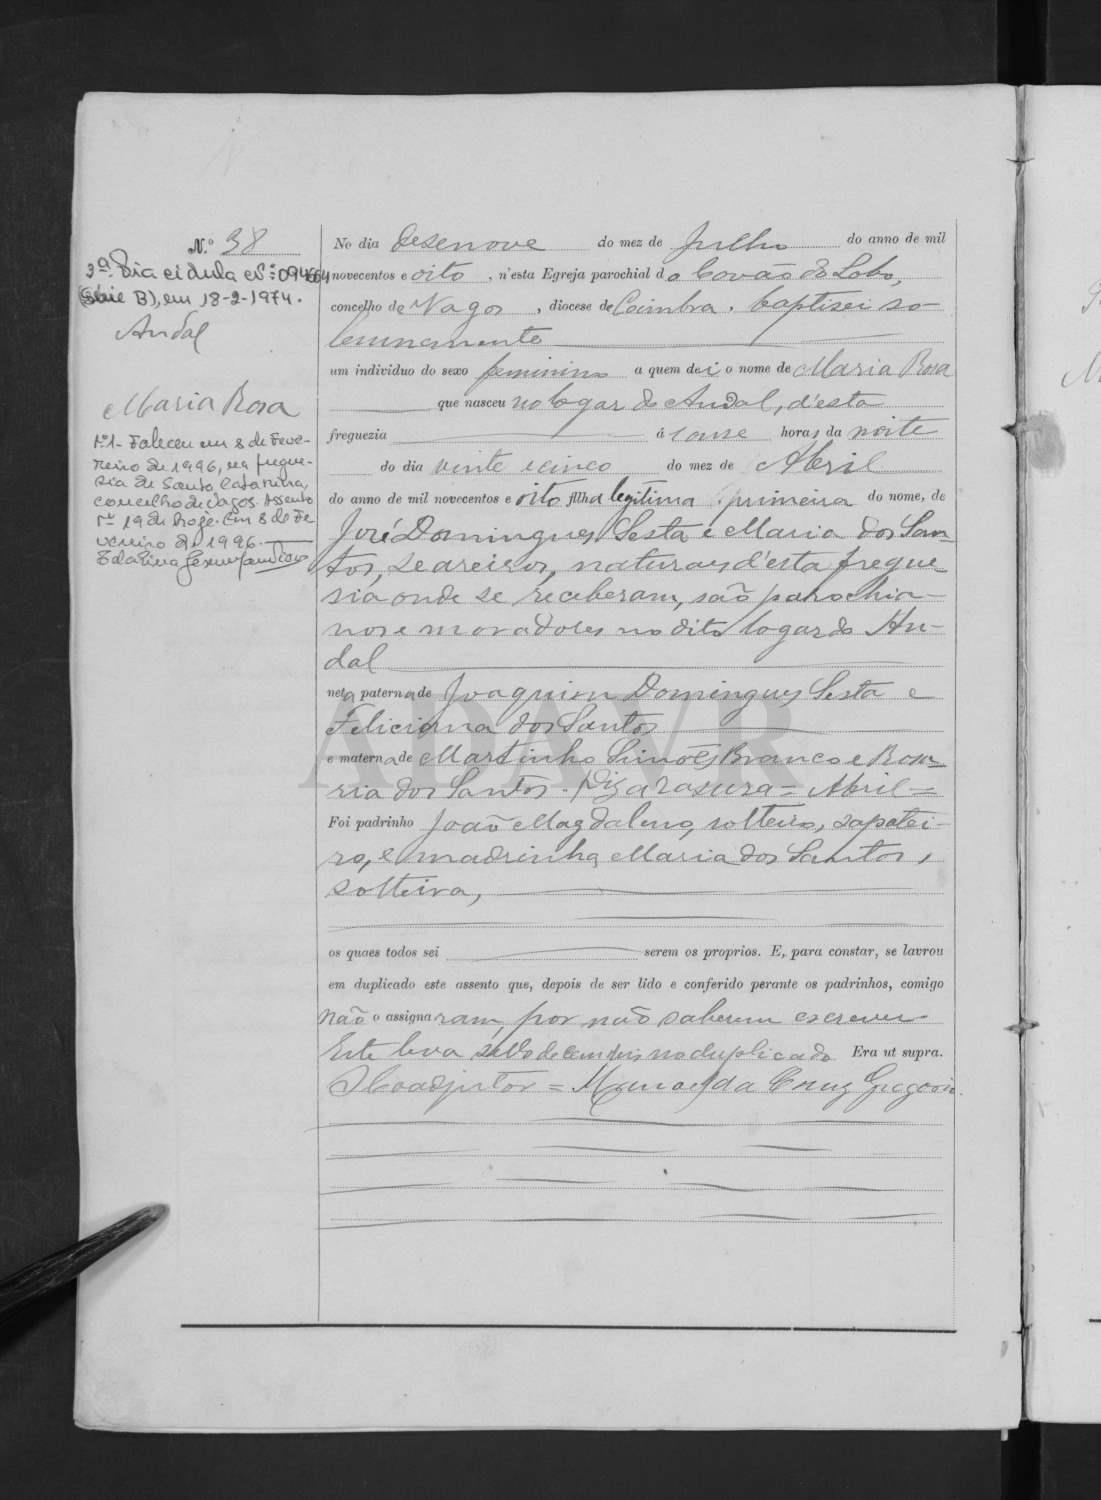 N.º 38
2ª Via cédula nº 094664
(série B), em 18-2-1974.
Andal
Maria Rosa
Nº1 - Faleceu em 8 de Feve-
reiro de 1996, na fregue-
sia de Santa Catarina,
concelho de Vagos. Assento
nº 19 de hoje. Em 8 de Fe-
vereiro de 1996.
No dia desenove do mez de Julho do anno de mil
novecentos e oito, n'esta Egreja parochial do Covão do Lobo,
concelho de Vagos, diocese de Coimbra, baptisei so-
lemnemente
um individuo do sexo feminino a quem dei o nome de Maria Rosa
que nasceu no logar do Andal, d'esta
freguezia ás onse horas da noite
do dia vinte e cinco do mez de Abril
do anno de mil novecentos e oito filha legitima, primeira do nome, de
José Domingues Sesta e Maria dos San-
tos, seareiros, naturaes d'esta fregue-
sia onde se receberam, são parochia-
nos e moradores no dito logar do An-
dal
neta paterna de Joaquim Domingues Sesta e
Feliciana dos Santos
e materna de Martinho Simões Branco e Rosa-
ria dos Santos. Diz a rasura = Abril =
Foi padrinho João Magdaleno, solteiro, sapatei-
ro, e madrinha Maria dos Santos,
solteira,
os quaes todos sei serem os proprios. E, para constar, se lavrou
em duplicado este assento que, depois de ser lido e conferido perante os padrinhos, comigo
não o assignaram, por não saberem escrever.
Este leva sello de cem reis no duplicado. Era ut supra.
O Coadjutor = Manoel da Cruz Gregorio.
ADAVR